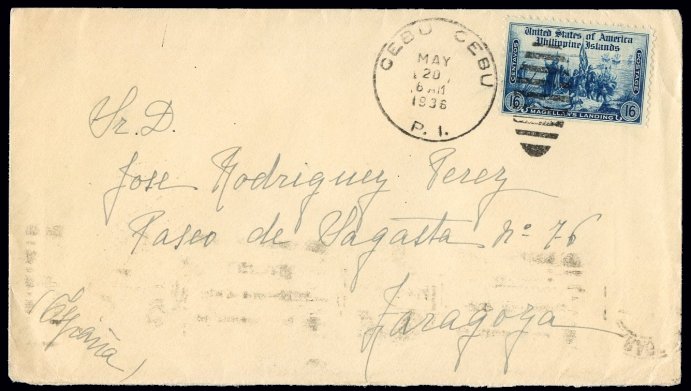 CEBU CEBU
MAY
20
6 AM
1936
P. I.
United States of America
Philippine Islands
CENTAVOS
POSTAGE
16 16
MAGELLAN'S LANDING
Sr. D.
Jose Rodriguez Perez
Paseo de Sagasta nº 76
Zaragoza
(España)